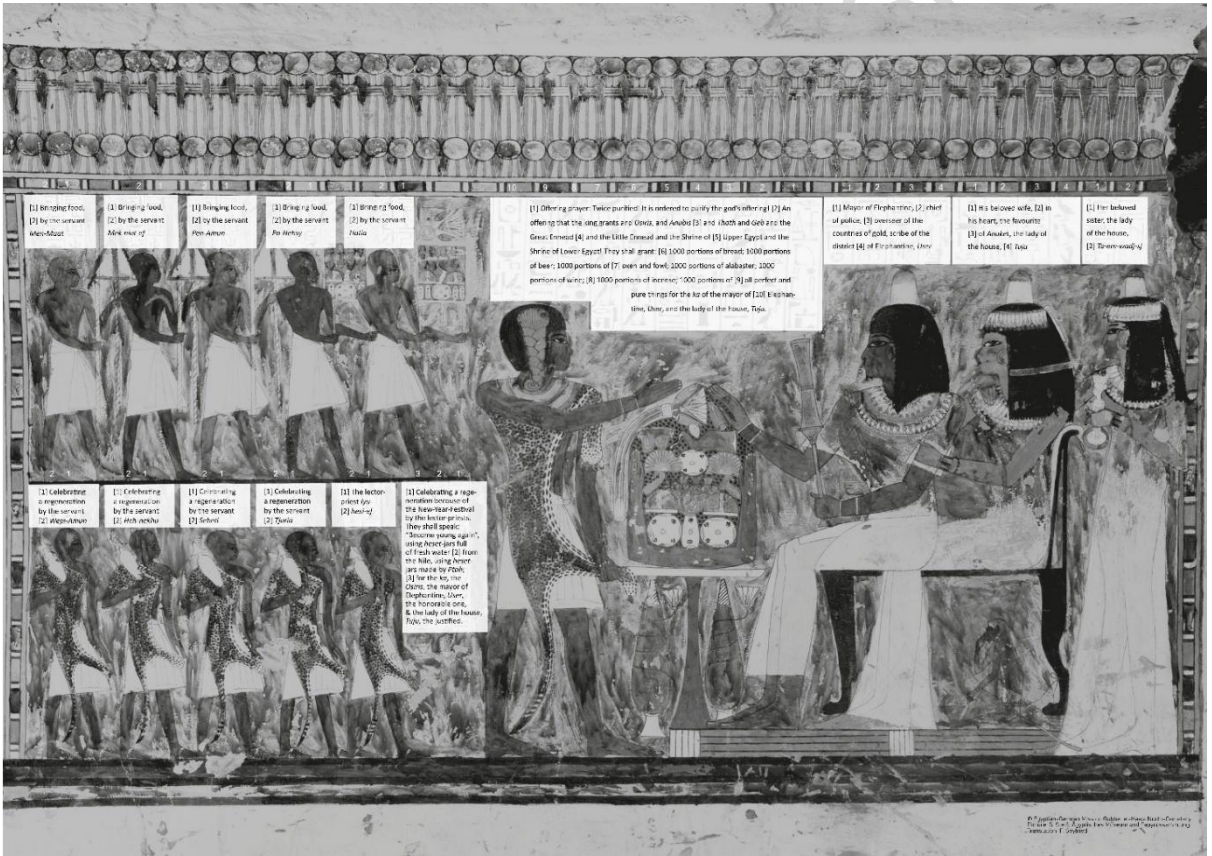 [1] Bringing food,
[2] by the servant
Men-Maat
[1] Bringing food,
[2] by the servant
Mek mut ef
[1] Bringing food,
[2] by the servant
Pen-Amun
[1] Bringing food,
[2] by the servant
Pa Nehsy
[1] Bringing food,
[2] by the servant
Natia
10 9 8 7 6 5 4 3 2 1
[1] Offering prayer: Twice purified! It is ordered to purify the god's offering! [2] An
offering that the king grants and Osiris, and Anubis [3] and Thoth and Geb and the
Great Ennead [4] and the Little Ennead and the Shrine of [5] Upper Egypt and the
Shrine of Lower Egypt! They shall grant: [6] 1000 portions of bread; 1000 portions
of beer; 1000 portions of [7] oxen and fowl; 1000 portions of alabaster; 1000
portions of wine; [8] 1000 portions of incense; 1000 portions of [9] all perfect and
pure things for the ka of the mayor of [10] Elephan-
tine, User, and the lady of the house, Tuju.
[1] Mayor of Elephantine, [2] chief
of police, [3] overseer of the
countries of gold, scribe of the
district [4] of Elephantine, User
[1] His beloved wife, [2] in
his heart, the favourite
[3] of Anuket, the lady of
the house, [4] Tuju
[1] Her beloved
sister, the lady
of the house,
[1] Celebrating
a regeneration
by the servant
[2] Wepi-Amun
[1] Celebrating
a regeneration
by the servant
[2] Heh-nekhu
[1] Celebrating
a regeneration
by the servant
[2] Sebeti
[1] Celebrating
a regeneration
by the servant
[2] Tjuria
[1] The lector-
priest Iyu
[2] hesi-ef
[1] Celebrating a rege-
neration because of
the New-Year-Festival
by the lector-priests.
They shall speak:
"Become young again",
using heset-jars full
of fresh water [2] from
the Nile, using heset-
jars made by Ptah;
[3] for the ka, the
Osiris, the mayor of
Elephantine, User,
the honorable one,
& the lady of the house,
Tuju, the justified.